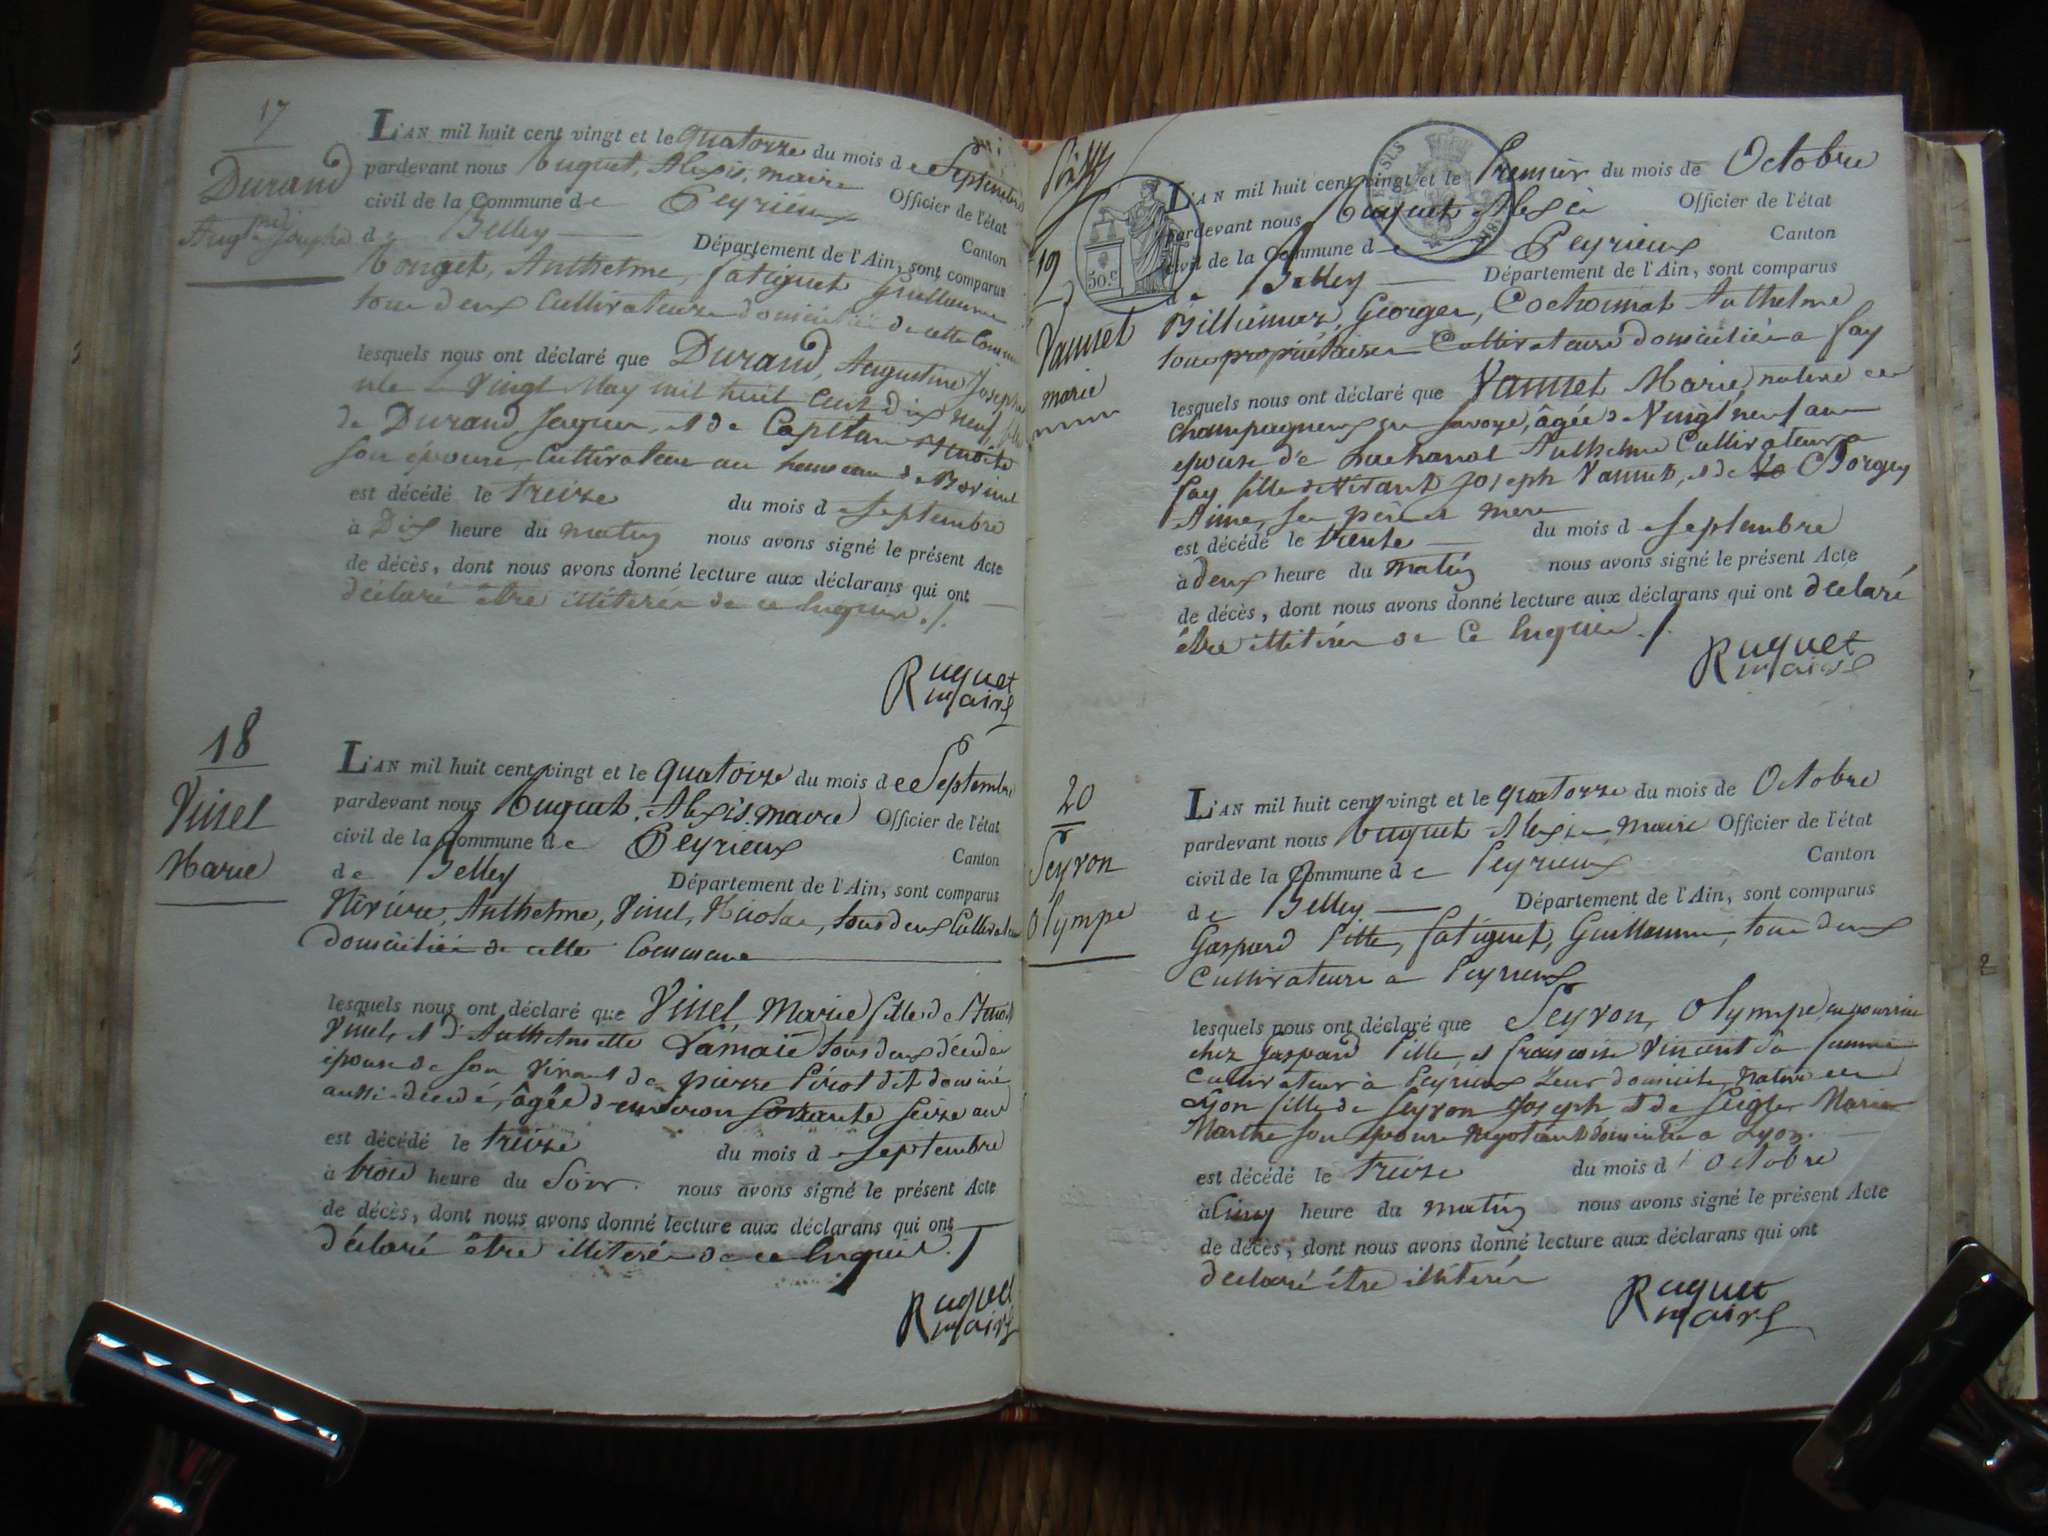 17
Durand
L'AN mil huit cent vingt et le quatorze du mois de Septembre
pardevant nous huguet, Alexis, maire Officier de l'état
civil de la Commune de Peyrieux Canton
de Belley Département de l'Ain, sont comparus
Anthelme, fatiguet Guillaume
tous deux Cultivateurs domiciliés de cette Commune
lesquels nous ont déclaré que Durand, Augustine Josephe
née le Vingt May mil huit Cent dix neuf, fille
de Durand Jaques, et de Capitan Benoite
son épouse, Cultivateur au hameau de
est décédé le treize du mois de Septembre
à Dix heure du matin nous avons signé le présent Acte
de décès, dont nous avons donné lecture aux déclarans qui ont
déclaré être illiterés de ce enquis ./.
Ruguet
maire
18
Vinel
Marie
L'AN mil huit cent vingt et le quatorze du mois de Septembre
pardevant nous huguet, Alexis, maire Officier de l'état
civil de la Commune de Peyrieux Canton
de Belley Département de l'Ain, sont comparus
Anthelme, Vinel, Nicolas, tous deux Cultivateurs
domiciliés de cette Commune
lesquels nous ont déclaré que Vinel, Marie fille de Benoit
Vinel, et d'Anthelmette Lamaie tous deux décédés
épouse de son vivant de pierre Pirot dit
aussi décédé, âgée d'environ Soixante Seize ans
est décédé le treize du mois de Septembre
à trois heure du Soir. nous avons signé le présent Acte
de décès, dont nous avons donné lecture aux déclarans qui ont
déclaré être illiterés de ce enquis.
Ruguet
maire
19
Vannet
marie
50.c
L'AN mil huit cent vingt et le Premier du mois de Octobre
pardevant nous huguet Alexis Officier de l'état
civil de la Commune de Peyrieux Canton
de Belley Département de l'Ain, sont comparus
Billiemaz, Georges, Cochonnat Anthelme
tous propriétaires Cultivateurs domiciliés a fay
lesquels nous ont déclaré que Vannet Marie, native de
champagneux en Savoye, âgée de Vingt neuf ans
epouse de Anthelme Cultivateur a
fay fille de Vivant Joseph Vannet, et de Borgey
Aimé, ses père et mere
est décédé le trente du mois de Septembre
à deux heure du matin nous avons signé le présent Acte
de décès, dont nous avons donné lecture aux déclarans qui ont déclaré
être illiterés de Ce enquis ./.
Ruguet
maire
20
Seyron
Olympe
L'AN mil huit cent vingt et le quatorze du mois de Octobre
pardevant nous huguet Alexis maire Officier de l'état
civil de la Commune de Peyrieux Canton
de Belley Département de l'Ain, sont comparus
Gaspard Pitte, fatiguet, Guillaume, tous deux
Cultivateurs a Peyrieux
lesquels nous ont déclaré que Seyron, Olympe, en nourrice
chez Gaspard Pitte et françoise Vincent sa femme
Cultivateur à Peyrieux leur domicile, native de
Lyon fille de Seyron Joseph et de Seigle Marie
Marthe son épouse négotiant domiciliés a Lyon.
est décédé le treize du mois d'Octobre
à Cinq heure du matin nous avons signé le présent Acte
de décès, dont nous avons donné lecture aux déclarans qui ont
déclaré être illiterés
Ruguet
maire